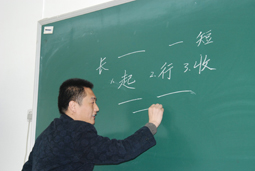 短
长
1.起 2.行 3.收